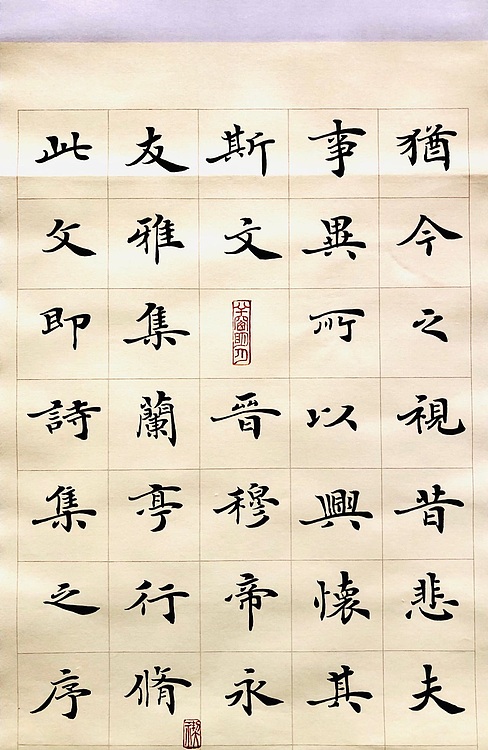 猶今之視昔悲夫
事異所以興懷其
斯文
半窗明月
晉穆帝永
友雅集蘭亭行脩
此文即詩集之序